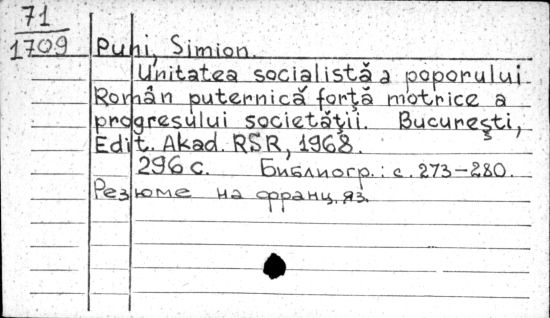 71
1709
Puni, Simion.
Unitatea socialistă a poporului
Român puternică forţă motrice a
progresului societăţii. Bucureşti,
Edit. Akad. RSR, 1968.
296 с. Библиогр.: с. 273-280.
Резюме на франц. яз.